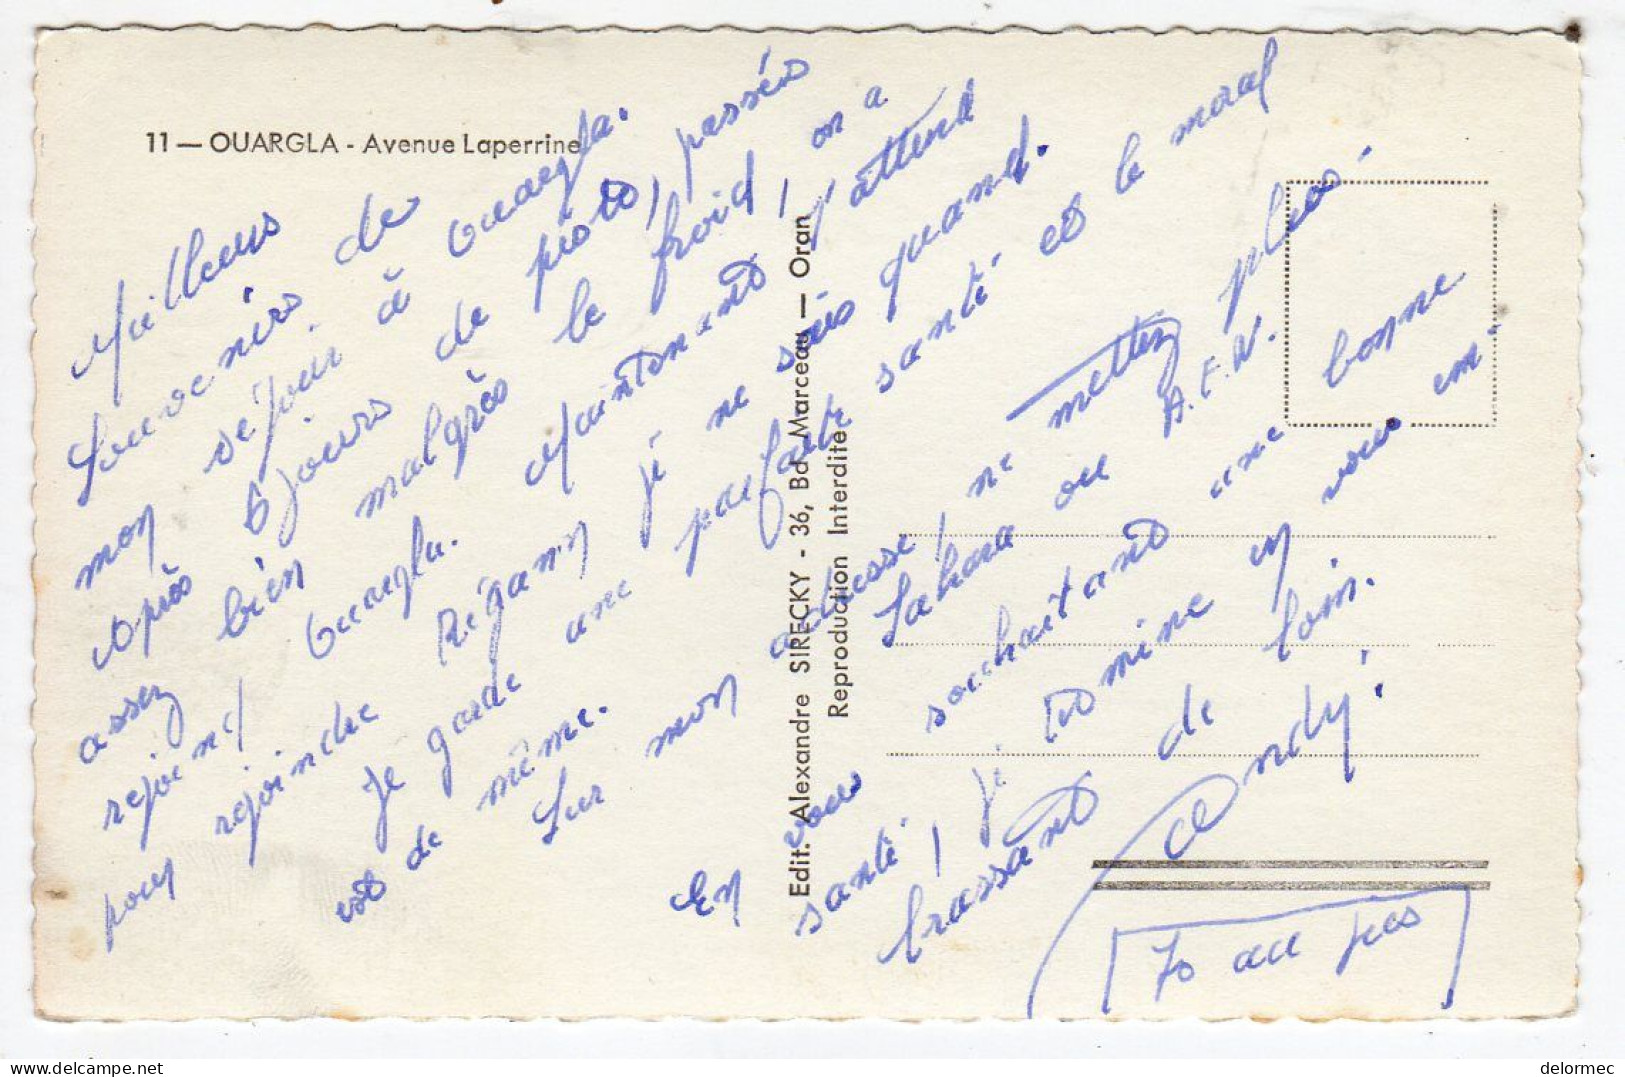 11 — OUARGLA - Avenue Laperrine
Meilleurs
Souvenirs de
mon séjour à Ouargla.
Après 6 jours de piste, passés
assez bien malgrès le froid, on a
rejoint Ouargla. Maintenant j'attend
pour rejoindre Régann je ne sais quand.
Je garde une parfaite santé et le moral
est de même.
Sur mon adresse, ne mettez plus
Sahara ou A.F.N.
En vous souhaitant une bonne
santé, je termine en vous em-
brassant de loin.
Andy.
70 au jus
Edit. Alexandre SIRECKY - 36, Bd Marceau — Oran
Reproduction Interdite
delormec